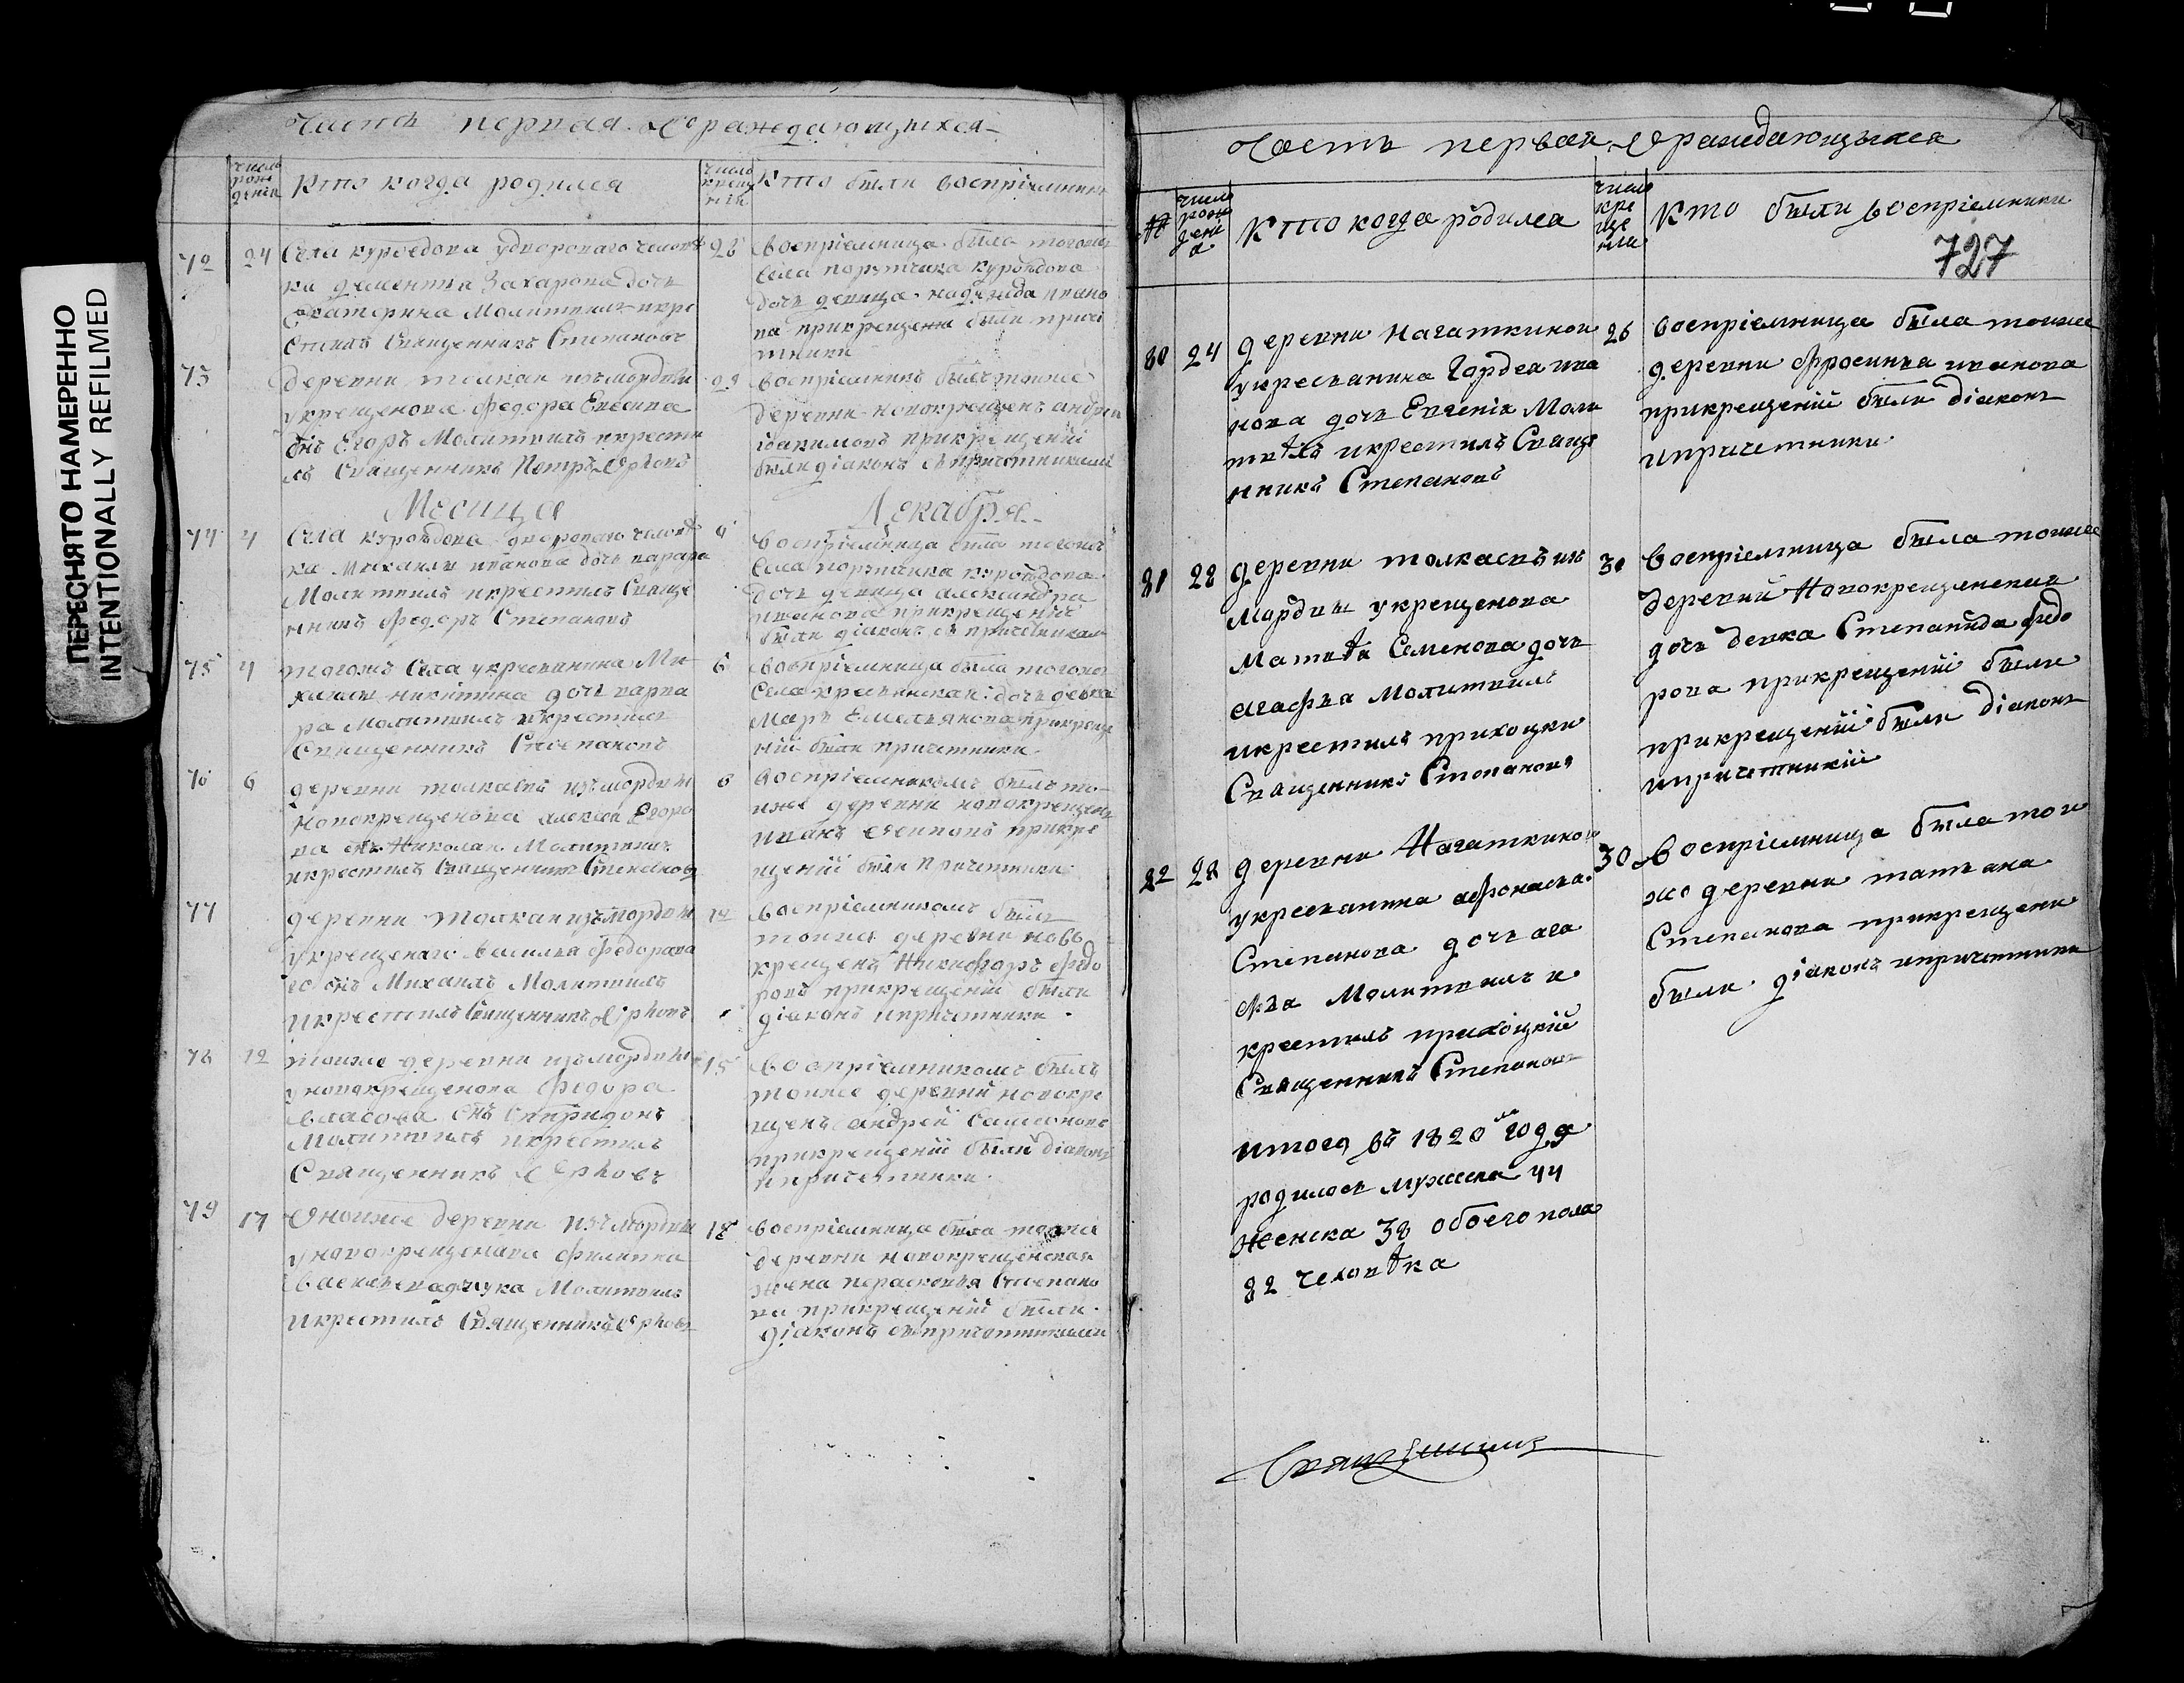 ПЕРЕСНЯТО НАМЕРЕННО
INTENTIONALLY REFILMED
Часть первая о раждающыхся
число рождения
Кто когда родился
число крещения
Кто были воспріемники
72 24 Села куроедова у двороваго челове
ка дементья Захарова дочь
Екатерина Молитвилъ икре
стилъ Священникъ Степановъ
28 воспріемница была тогожъ
Села порутчика куроедова
дочь девица надежда ивано
ва прикрещени были приче
тники
73 деревни толкаи изъмордвы
укрещенова Федора
снъ Егоръ Молитвилъ икрести
лъ Священникъ Петръ
29 воспріемникъ былъ тоиже
деревни новокрещенъ андреи
прикрещеніи
были діаконъ съпричетниками
Месяца Декабря
74 4 Села куроедова двороваго челове
ка Михаилы иванова дочь варвара
Молитвилъ икрестилъ Свяще
нникъ Федоръ Степановъ
воспріемница была тогожъ
Села порутчика куроедова
дочь девица александра
иванова прикрещеніи
были діаконъ съ причетниками
75 4 тогожъ Села укресьянина Ми
хаилы никитина дочь варва
ра молитвилъ икрестилъ
Священникъ Степановъ
6 воспріемница была тогоже
Села кресьянская дочь девка
Марь Емельянова прикреще
ніи были причетники
76 6 деревни толкаевъ изъмордвы
Новокрещенова алексея Егоро
ва снъ Николаи Молитвилъ
икрестилъ Священникъ Степановъ
8 воспріемникомъ былъ то
иже деревни новокрещенъ
иванъ прикре
щеніи были причетники
77 деревни толкаи изъмордвы
укрещенаго василья федорова
снъ Михаилъ Молитвилъ
икрестилъ Священникъ
12 воспріемникомъ былъ
тоиже деревни ново
крещенъ Никифоръ федо
ровъ прикрещеніи были
діаконъ ипричетники
78 12 тоиже деревни изъмордвы
уновокрещенова федора
власова снъ Спиридонъ
Молитвилъ икрестилъ
Священникъ
15 воспріемникомъ былъ
тоиже деревни новокре
щенъ андреи Самсоновъ
прикрещеніи были діаконъ
ипричетники
79 17 Оноиже деревни изъмордвы
уновокрещенова филипа
Молитвилъ
икрестилъ Священникъ
18 воспріемница была тоиже
деревни новокрещенская
жена парасковья Степано
ва прикрещеніи были
діаконъ съпричетниками
Часть первая о раждающыхся
№
число рождения
Кто когда родился
число крещения
Кто были воспріемники
727
80 24 деревни нагаткинои
укресьянина Гордея ива
нова дочь Евгенія Моли
твилъ икрестилъ Свяще
нникъ Степановъ
26 воспріемница была тоиже
деревни Фросинья иванова
прикрещеніи были діаконъ
ипричетники
81 28 деревни толкаевъ изъ
Мордвы укрещенова
Матвѣя Семенова дочь
агафья Молитвилъ
икрестилъ приходцки
Священникъ Степановъ
30 воспріемница была тоиже
деревни Новокрещенская
дочь девка Степанида федо
рова прикрещеніи были
прикрещеніи были діаконъ
ипричетники
82 28 деревни Нагаткинои
укресьянина афонасья
Степанова дочь ага
фья Молитвилъ и
крестилъ приходцкіи
Священникъ Степановъ
30 воспріемница была тои
же деревни татьяна
Степанова прикрещени
были діаконъ ипричетники
итого въ 1820мъ году
родилось мужеска 44
женска 38 обоего пола
82 человѣка